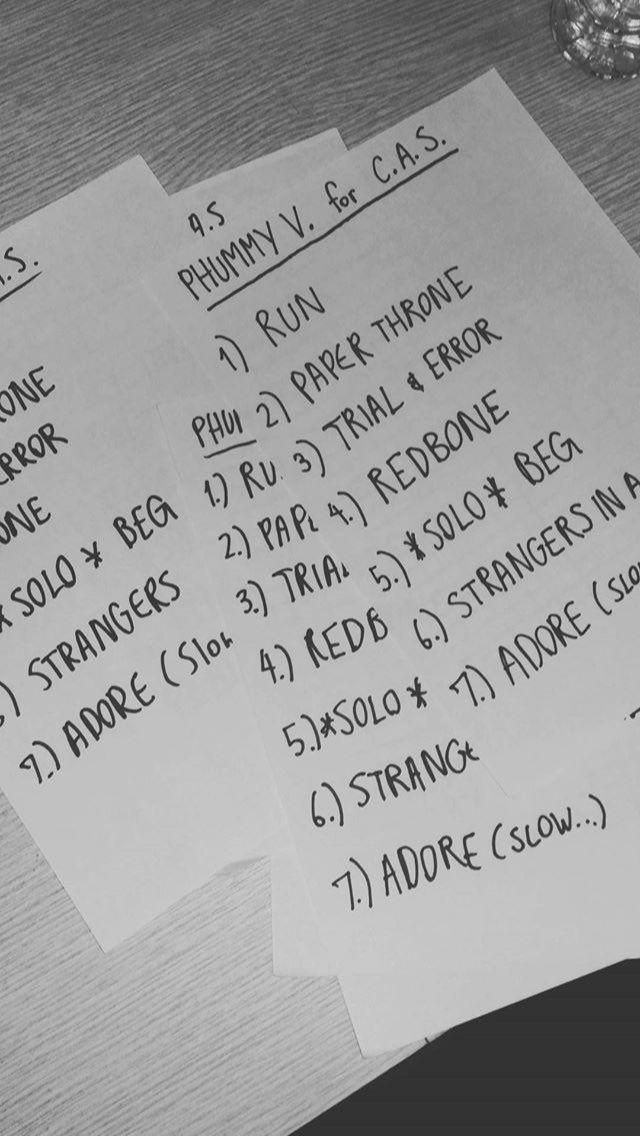 PHUMMY V. for C.A.S.
1) RUN
2) PAPER THRONE
3) TRIAL & ERROR
4.) REDBONE
5.) *SOLO* BEG
6.) STRANGERS IN A
7.) ADORE (SLO
A.S
PHU
1.) RU
2.) PAP
3.) TRIA
4.) REDB
5.) *SOLO*
6.) STRANG
7.) ADORE (SLOW...)
.S.
ONE
RROR
ONE
*SOLO* BEG
) STRANGERS
7.) ADORE (Slow